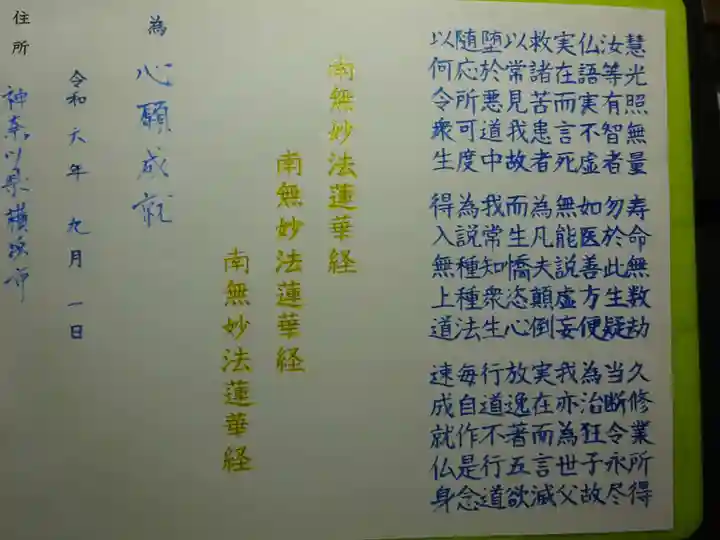 慧光照無量 寿命無数劫 久修業所得
汝等有智者 勿於此生疑 当断令永尽
仏語実不虚 如医善方便 為治狂子故
実在而言死 無能説虚妄 我亦為世父
救諸苦患者 為凡夫顛倒 実在而言滅
以常見我故 而生憍恣心 放逸著五欲
堕於悪道中 我常知衆生 行道不行道
随応所可度 為説種種法 毎自作是念
以何令衆生 得入無上道 速成就仏身
南無妙法蓮華経
南無妙法蓮華経
南無妙法蓮華経
為 心願成就
令和六年 九月 一日
住所 神奈川県横浜市